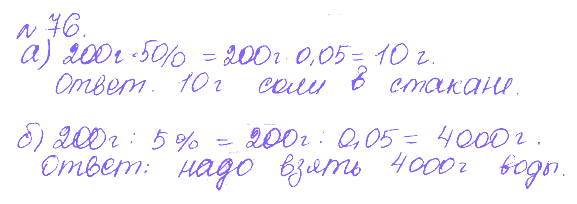 № 76.
а) 200г · 5% = 200г · 0,05 = 10 г.
Ответ. 10 г соли в стакане.
б) 200г : 5% = 200г : 0,05 = 4000 г.
Ответ: надо взять 4000г воды.